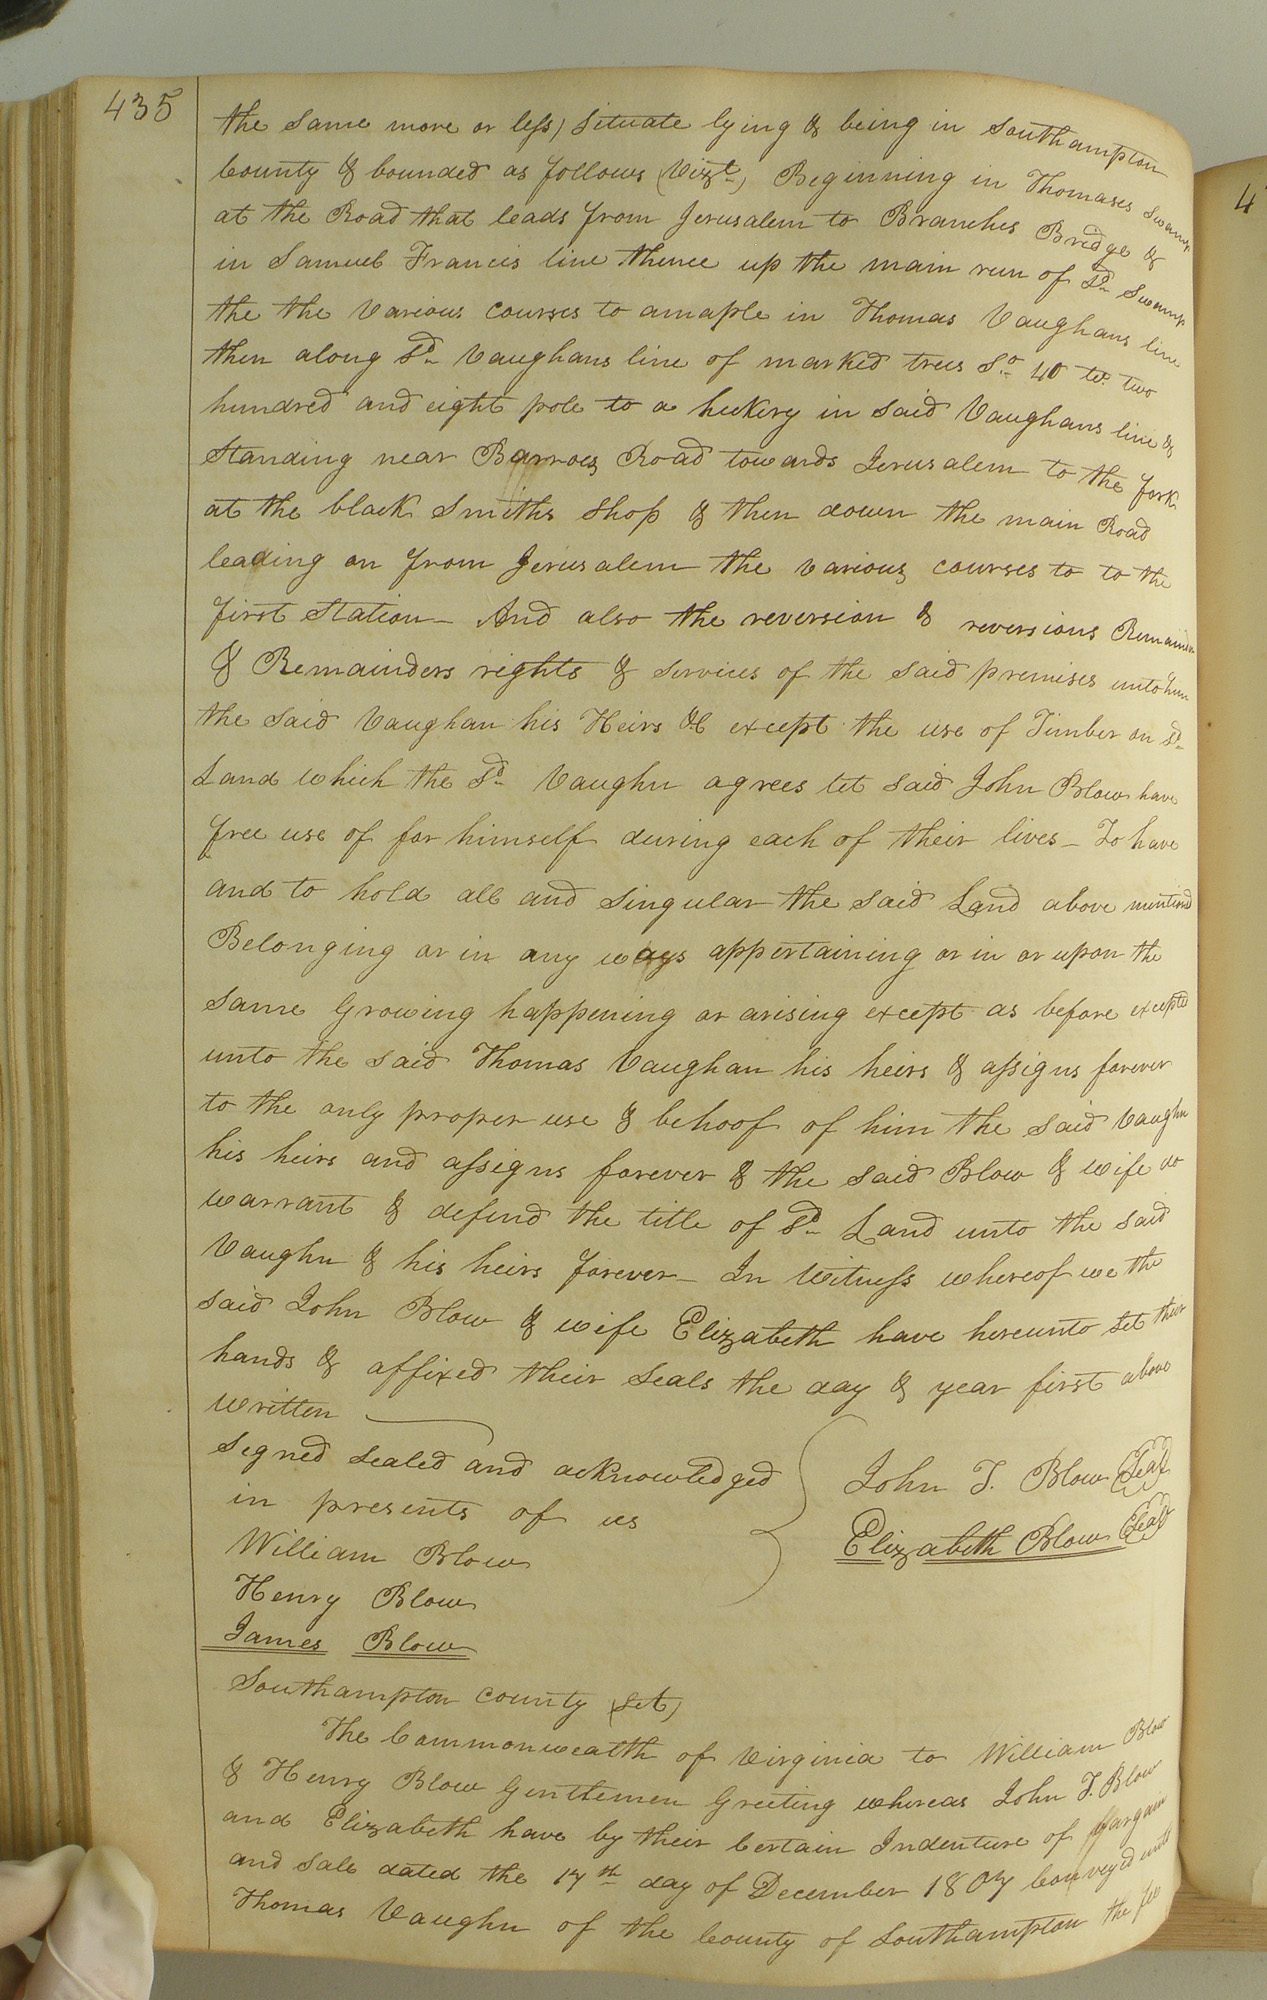 435
the same more or less) Situate lying & being in Southampton
County & bounded as follows (Vizt) Beginning in Thomases Swamp
at the Road that leads from Jerusalem to Branches Bridge &
in Samuel Francis line thence up the main run of Sd Swamp
the the Various Courses to amaple in Thomas Vaughans line
then along Sd Vaughans line of marked trees So 40 wt two
hundred and eight pole to a hickery in said Vaughans line &
Standing near Barrows Road towards Jerusalem to the fork
at the black Smiths Shop & then down the main Road
leading on from Jerusalem the various courses to to the
first Station – And also the reversion & reversions Remainder
& Remainders rights & services of the said premises unto him
the said Vaughan his Heirs &c except the use of Timber on Sd
Land which the Sd Vaughn agrees let said John Blow have
free use of for himself during each of their lives – To have
and to hold all and singular the said Land above mentiond
Belonging or in any ways appertaining or in or upon the
same Growing happening or arising except as before excepted
unto the said Thomas Vaughan his heirs & assigns forever
to the only proper use & behoof of him the said Vaughn
his heirs and assigns forever & the said Blow & wife do
warrant & defend the title of Sd Land unto the said
Vaughn & his heirs forever – In Witness whereof we the
said John Blow & wife Elizabeth have hereunto set their
hands & affixed their seals the day & year first above
written
Signed sealed and acknowledged
in presents of us
John T. Blow (Seal)
Elizabeth Blow (Seal)
William Blow
Henry Blow
James Blow
Southampton County (Set)
The Commonwealth of Virginia to William Blow
& Henry Blow Gentlemen Greeting whereas John T. Blow
and Elizabeth have by their Certain Indenture of Bargain
and sale dated the 17th day of December 1807 Conveyed unto
Thomas Vaughn of the County of Southampton the fee
4